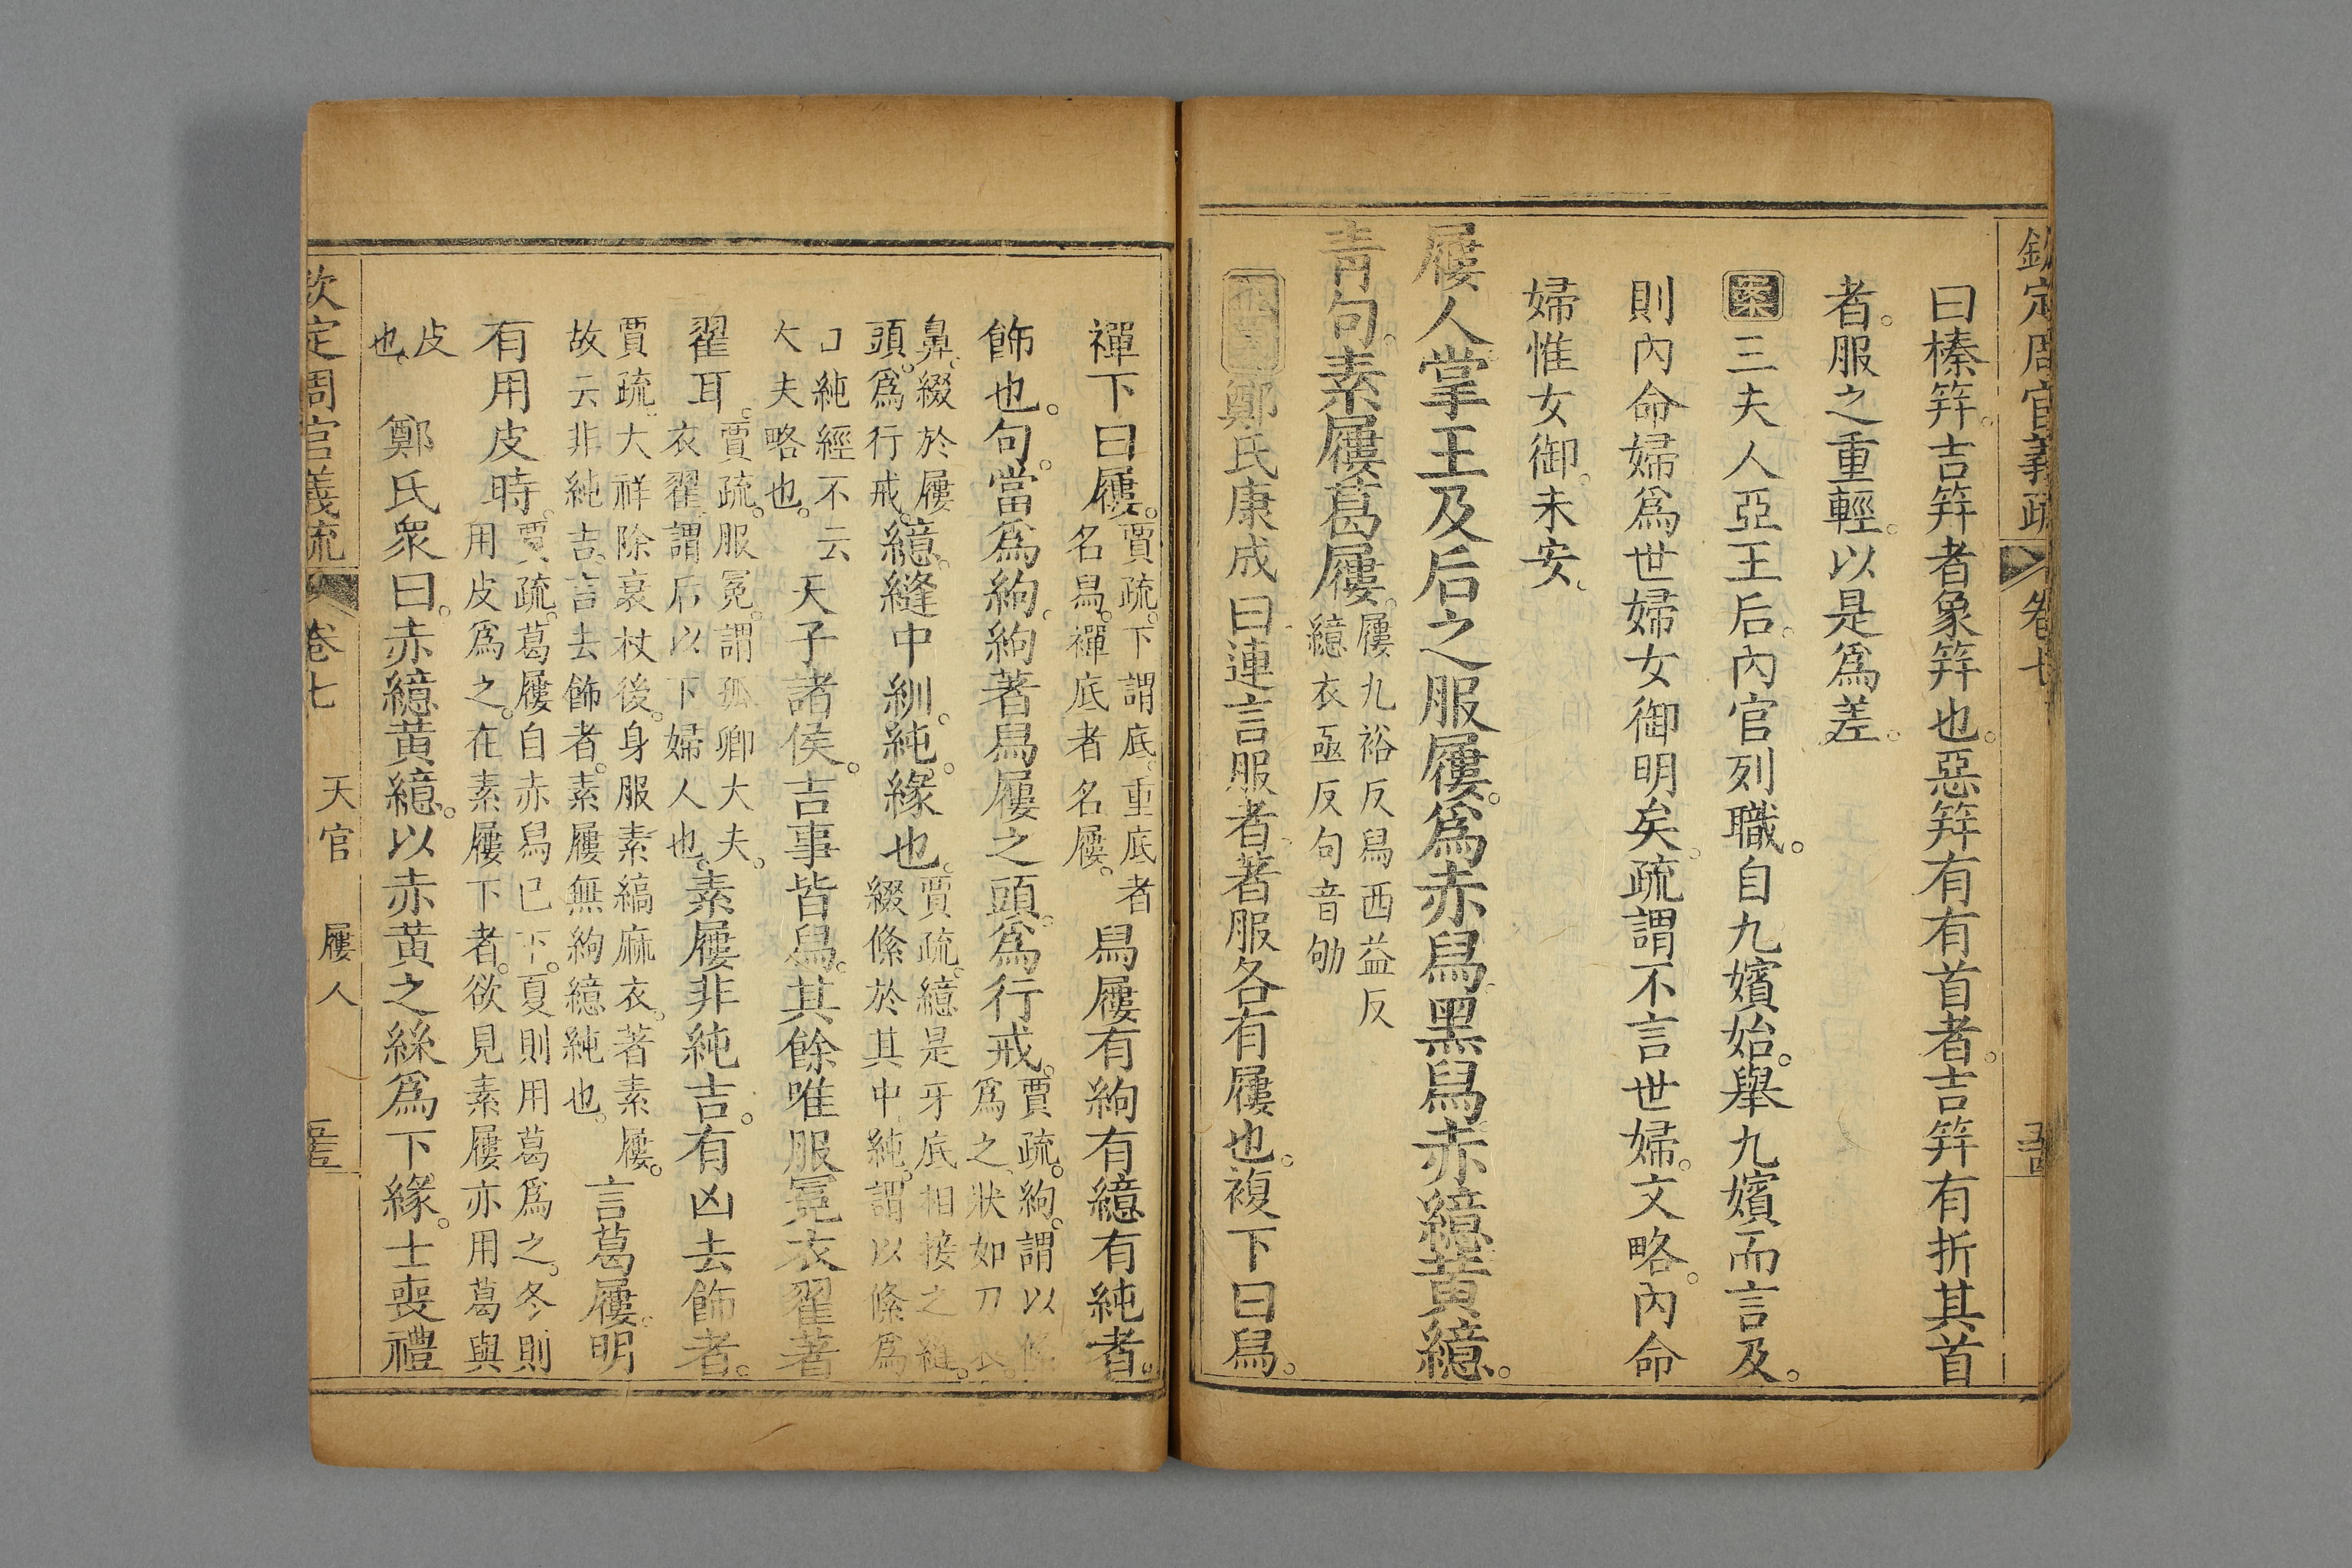 欽定周官義疏 卷七
曰榛筓。吉筓者象筓也。惡筓有有首者。吉筓有折其首
者。服之重輕。以是爲差。
案三夫人亞王后。內官列職。自九嬪始。舉九嬪而言及。
則內命婦爲世婦女御明矣。疏謂不言世婦。文略。內命
婦惟女御。未安。
屨人掌王及后之服屨。爲赤舄黑舄赤繶黃繶。
青句。素屨葛屨。
屨九裕反舄西益反
繶衣亟反句音劬
鄭氏康成曰連言服者著服各有屨也。複下曰舄。
襌下曰屨。
賈疏。下謂底。重底者
名舄。襌底者名屨。
舄屨有絇有繶有純者。
飾也。句。當爲絇。絇著舄屨之頭。爲行戒。
賈疏。絇。謂以絛
爲之。狀如刀衣。
鼻。綴於屨
頭。爲行戒。
繶。縫中紃。純。緣也。
賈疏。繶是牙底相接之縫。
綴絛於其中。純。謂以絛爲
口純經不云
大夫略也。
天子諸侯。吉事皆舄。其餘唯服冕衣翟著
翟耳。
賈疏。服冕。謂孤卿大夫。
衣翟。謂后以下婦人也。
素屨非純吉。有凶去飾者。
賈疏。大祥除衰杖後。身服素縞麻衣。著素屨。
故云非純吉。言去飾者。素屨無絇繶純也。
言葛屨。明
有用皮時。
賈疏。葛屨自赤舄已下。夏則用葛爲之。冬則
用皮爲之。在素屨下者。欲見素屨亦用葛與
皮
也。
鄭氏衆曰。赤繶黃繶。以赤黃之絲爲下緣。士喪禮
欽定周官義疏 卷七 天官 屨人